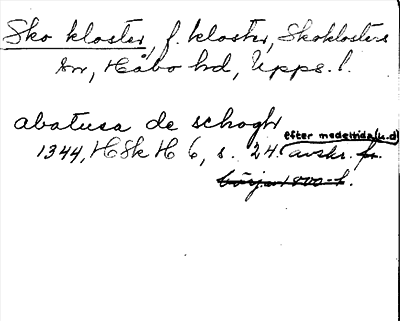 Sko kloster, f. kloster, Skoklosters
sn, Håbo hd, Upps. l.
abatissa de schogh
efter medeltida (u.d)
1344, HSkH 6, s. 24. avskr. fr.
början 1800-t.